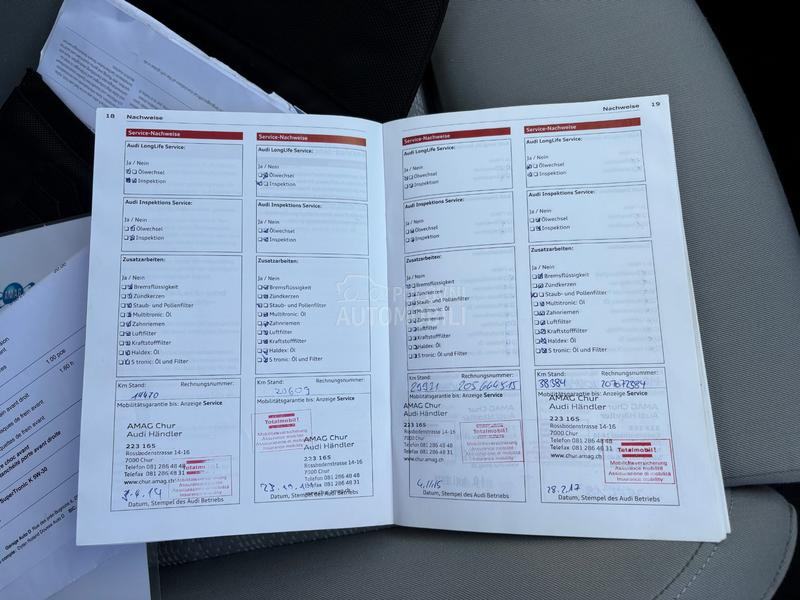 18 Nachweise
Service-Nachweise
Audi LongLife Service:
Ja / Nein
Ölwechsel
Inspektion
Audi Inspektions Service:
Ja / Nein
Ölwechsel
Inspektion
Zusatzarbeiten:
Ja / Nein
Bremsflüssigkeit
Zündkerzen
Staub- und Pollenfilter
Multitronic: Öl
Zahnriemen
Luftfilter
Kraftstofffilter
Haldex: Öl
S tronic: Öl und Filter
Km Stand: Rechnungsnummer:
Mobilitätsgarantie bis: Anzeige Service
AMAG Chur
Audi Händler
223 165
Rossbodenstrasse 14-16
7000 Chur
Telefon 081 286 48 48
Telefax 081 286 48 31
www.chur.amag.ch
Totalmobil!
Datum, Stempel des Audi Betriebs
Service-Nachweise
Audi LongLife Service:
Ja / Nein
Ölwechsel
Inspektion
Audi Inspektions Service:
Ja / Nein
Ölwechsel
Inspektion
Zusatzarbeiten:
Ja / Nein
Bremsflüssigkeit
Zündkerzen
Staub- und Pollenfilter
Multitronic: Öl
Zahnriemen
Luftfilter
Kraftstofffilter
Haldex: Öl
S tronic: Öl und Filter
Km Stand: Rechnungsnummer:
20609
Mobilitätsgarantie bis: Anzeige Service
Totalmobil!
AMAG Chur
Audi Händler
223 165
Rossbodenstrasse 14-16
7000 Chur
Telefon 081 286 48 48
Telefax 081 286 48 31
Datum, Stempel des Audi Betriebs
Nachweise 19
Service-Nachweise
Audi LongLife Service:
Ja / Nein
Ölwechsel
Inspektion
Audi Inspektions Service:
Ja / Nein
Ölwechsel
Inspektion
Zusatzarbeiten:
Ja / Nein
Bremsflüssigkeit
Zündkerzen
Staub- und Pollenfilter
Multitronic: Öl
Zahnriemen
Luftfilter
Kraftstofffilter
Haldex: Öl
S tronic: Öl und Filter
Km Stand: Rechnungsnummer:
Mobilitätsgarantie bis: Anzeige Service
AMAG Chur
Audi Händler
223 165
Rossbodenstrasse 14-16
7000 Chur
Telefon 081 286 48 48
Telefax 081 286 48 31
chur.amag.ch
Totalmobil!
4.11.15
Datum, Stempel des Audi Betriebs
Service-Nachweise
Audi LongLife Service:
Ja / Nein
Ölwechsel
Inspektion
Audi Inspektions Service:
Ja / Nein
Ölwechsel
Inspektion
Zusatzarbeiten:
Ja / Nein
Bremsflüssigkeit
Zündkerzen
Staub- und Pollenfilter
Multitronic: Öl
Zahnriemen
Luftfilter
Kraftstofffilter
Haldex: Öl
S tronic: Öl und Filter
Km Stand: Rechnungsnummer:
38384
Mobilitätsgarantie bis: Anzeige Service
AMAG Chur
Audi Händler
223 165
Rossbodenstrasse 14-16
7000 Chur
Telefon 081 286 48 48
Telefax 081 286 48 31
www.chur.amag.ch
Totalmobil!
Mobilitätsversicherung
Assurance mobilité
Assicurazione di mobilità
Insurance mobility
28.2.17
Datum, Stempel des Audi Betriebs
AUTOMOBILI